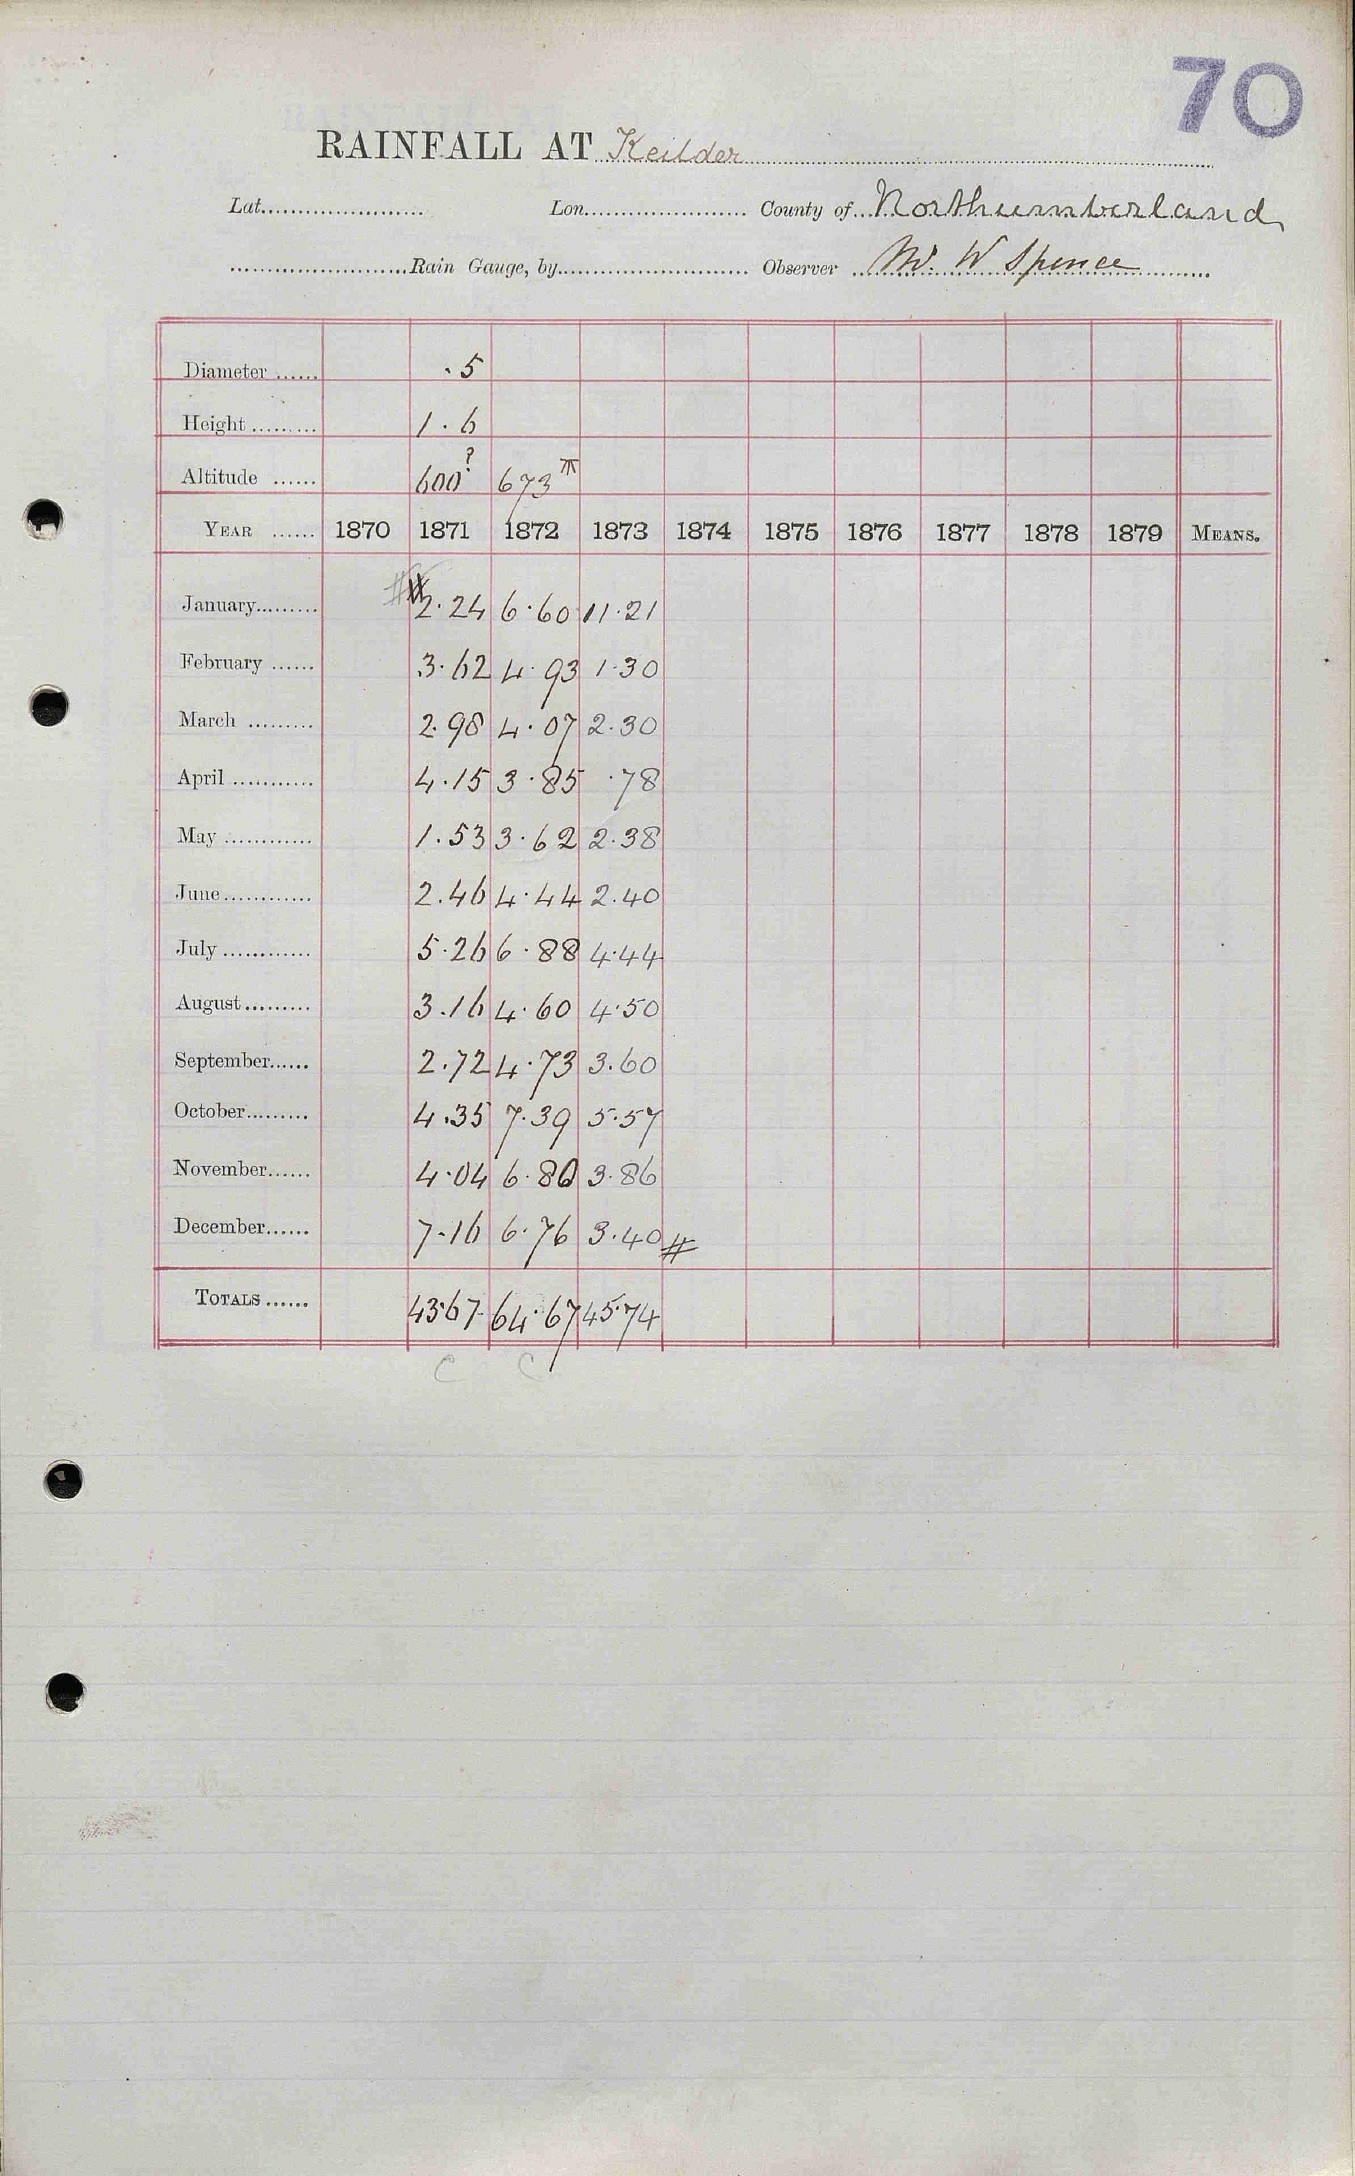 70
RAINFALL AT Keilder
Lat. Lon. County of Northumberland
Rain Gauge, by Observer Mr. W Spence
Diameter ...... .5
Height ......... 1.6
Altitude ...... 600? 673
YEAR ...... 1870 1871 1872 1873 1874 1875 1876 1877 1878 1879 MEANS.
January......... # 2.24 6.60 11.21
February ...... 3.62 4.93 1.30
March ......... 2.98 4.07 2.30
April ............ 4.15 3.85 .78
May ............ 1.53 3.62 2.38
June............ 2.46 4.44 2.40
July ............ 5.26 6.88 4.44
August......... 3.16 4.60 4.50
September...... 2.72 4.73 3.60
October......... 4.35 7.39 5.57
November...... 4.04 6.80 3.86
December...... 7.16 6.76 3.40 #
TOTALS ...... 43.67 64.67 45.74
C C